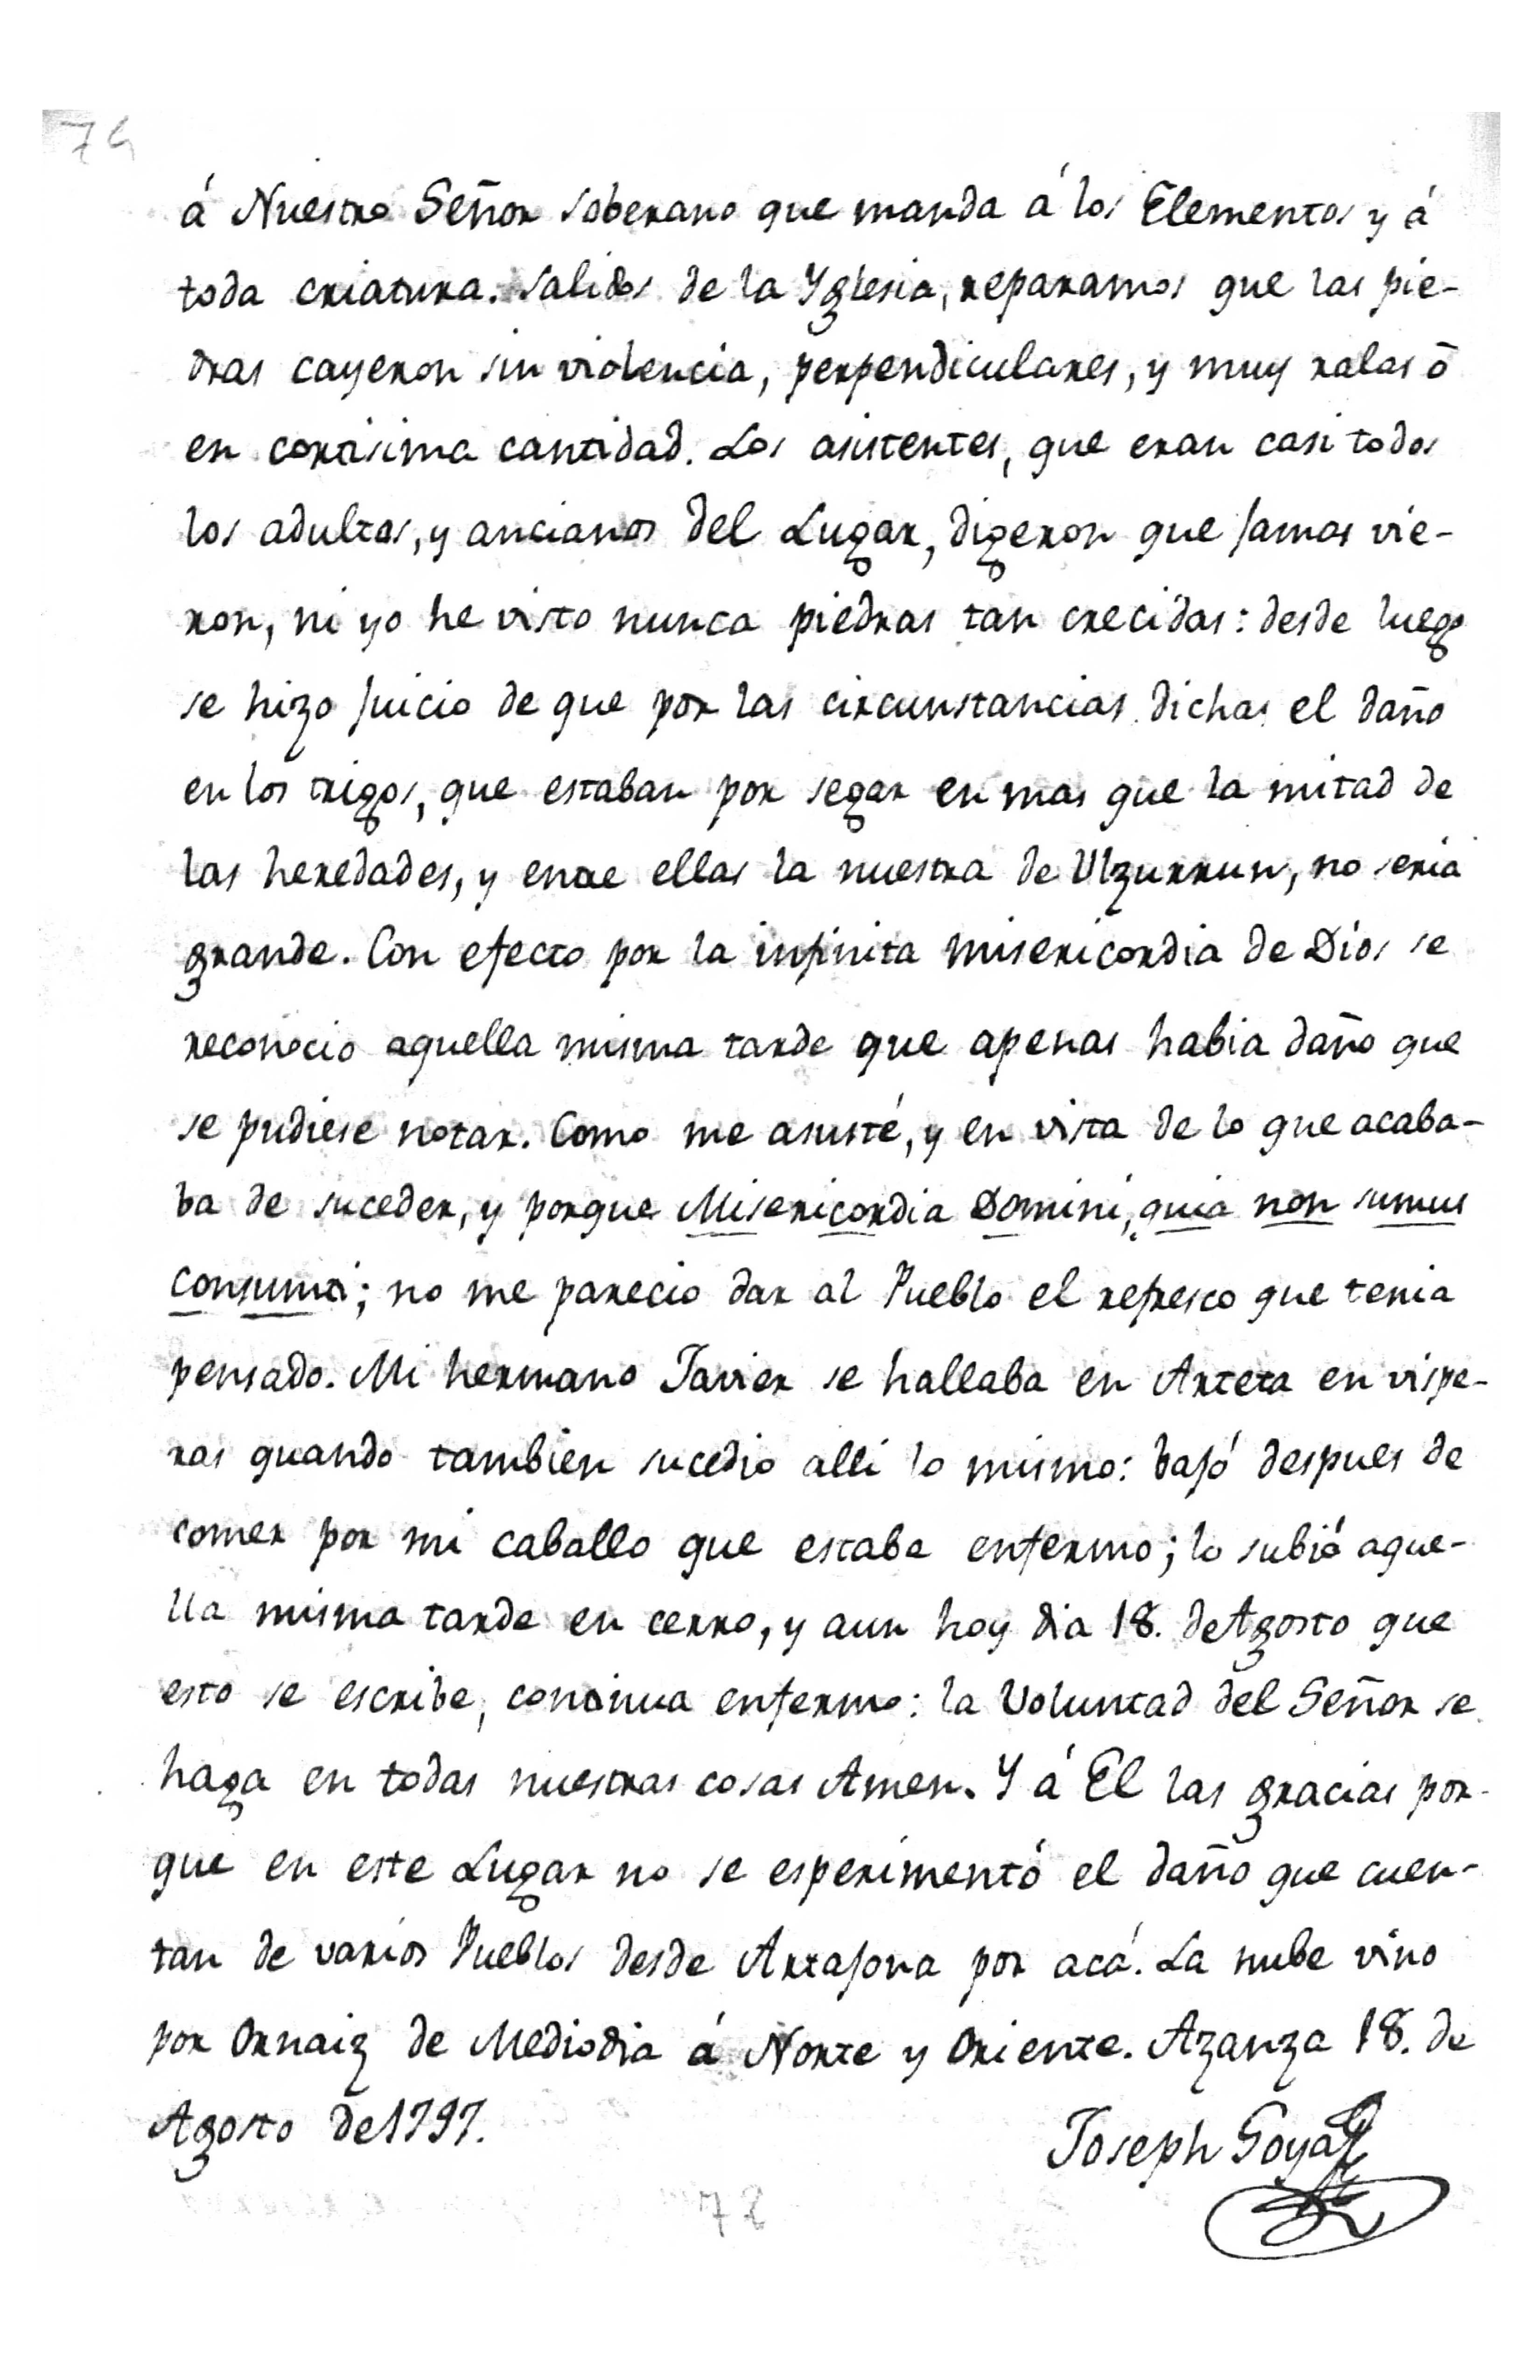 74
á Nuestro Señor soberano que manda á los Elementos y á
toda criatura. Salidos de la Yglesia, reparamos que las pie-
dras cayeron sin violencia, perpendiculares, y muy ralas ó
en cortisima cantidad. Los asistentes, que eran casi todos
los adultos, y ancianos del Lugar, digeron que jamas vie-
ron, ni yo he visto nunca piedras tan crecidas: desde luego
se hizo juicio de que por las circunstancias dichas el daño
en los trigos, que estaban por segar en mas que la mitad de
las heredades, y entre ellas la nuestra de Ulzurrun, no seria
grande. Con efecto por la infinita misericordia de Dios se
reconocio aquella misma tarde que apenas habia daño que
se pudiese notar. Como me asusté, y en vista de lo que acaba-
ba de suceder, y porque Misericordia Domini, quia non sumus
consumti; no me parecio dar al Pueblo el refresco que tenia
pensado. Mi hermano Javier se hallaba en Arteta en vispe-
ras quando tambien sucedio alli lo mismo: bajó despues de
comer por mi caballo que estaba enfermo; lo subió aque-
lla misma tarde en cerro, y aun hoy dia 18. de Agosto que
esto se escribe, continua enfermo: la Voluntad del Señor se
haga en todas nuestras cosas Amen. Y á El las gracias por-
que en este Lugar no se esperimentó el daño que cuen-
tan de varios Pueblos desde Artajona por acá. La nube vino
por Ornaiz de Mediodia á Norte y Oriente. Azanza 18. de
Agosto de 1797.
Joseph Goya
78